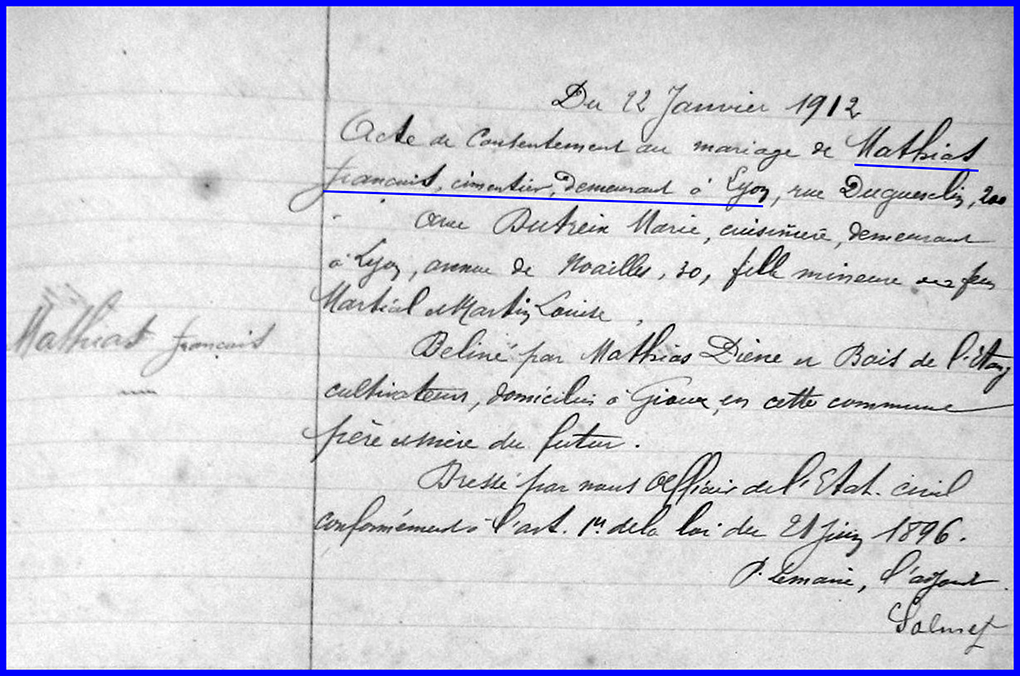 Du 22 Janvier 1912
Acte de Consentement au mariage de Mathias
françois, cimentier, demeurant à Lyon, rue Duguesclin, 200
avec Dutrein Marie, cuisinière, demeurant
à Lyon, avenue de Noailles, 30, fille mineure de feu
Martial et Martin Louise,
par Mathias Diène et Bois de l'Etang
cultivateurs, domiciliés à Gioux, en cette commune
père et mère du futur.
Dressé par nous Officier de l'Etat-civil
conformément à l'art. 1er de la loi du 21 Juin 1896.
P. le maire, l'adjoint.
Mathias françois